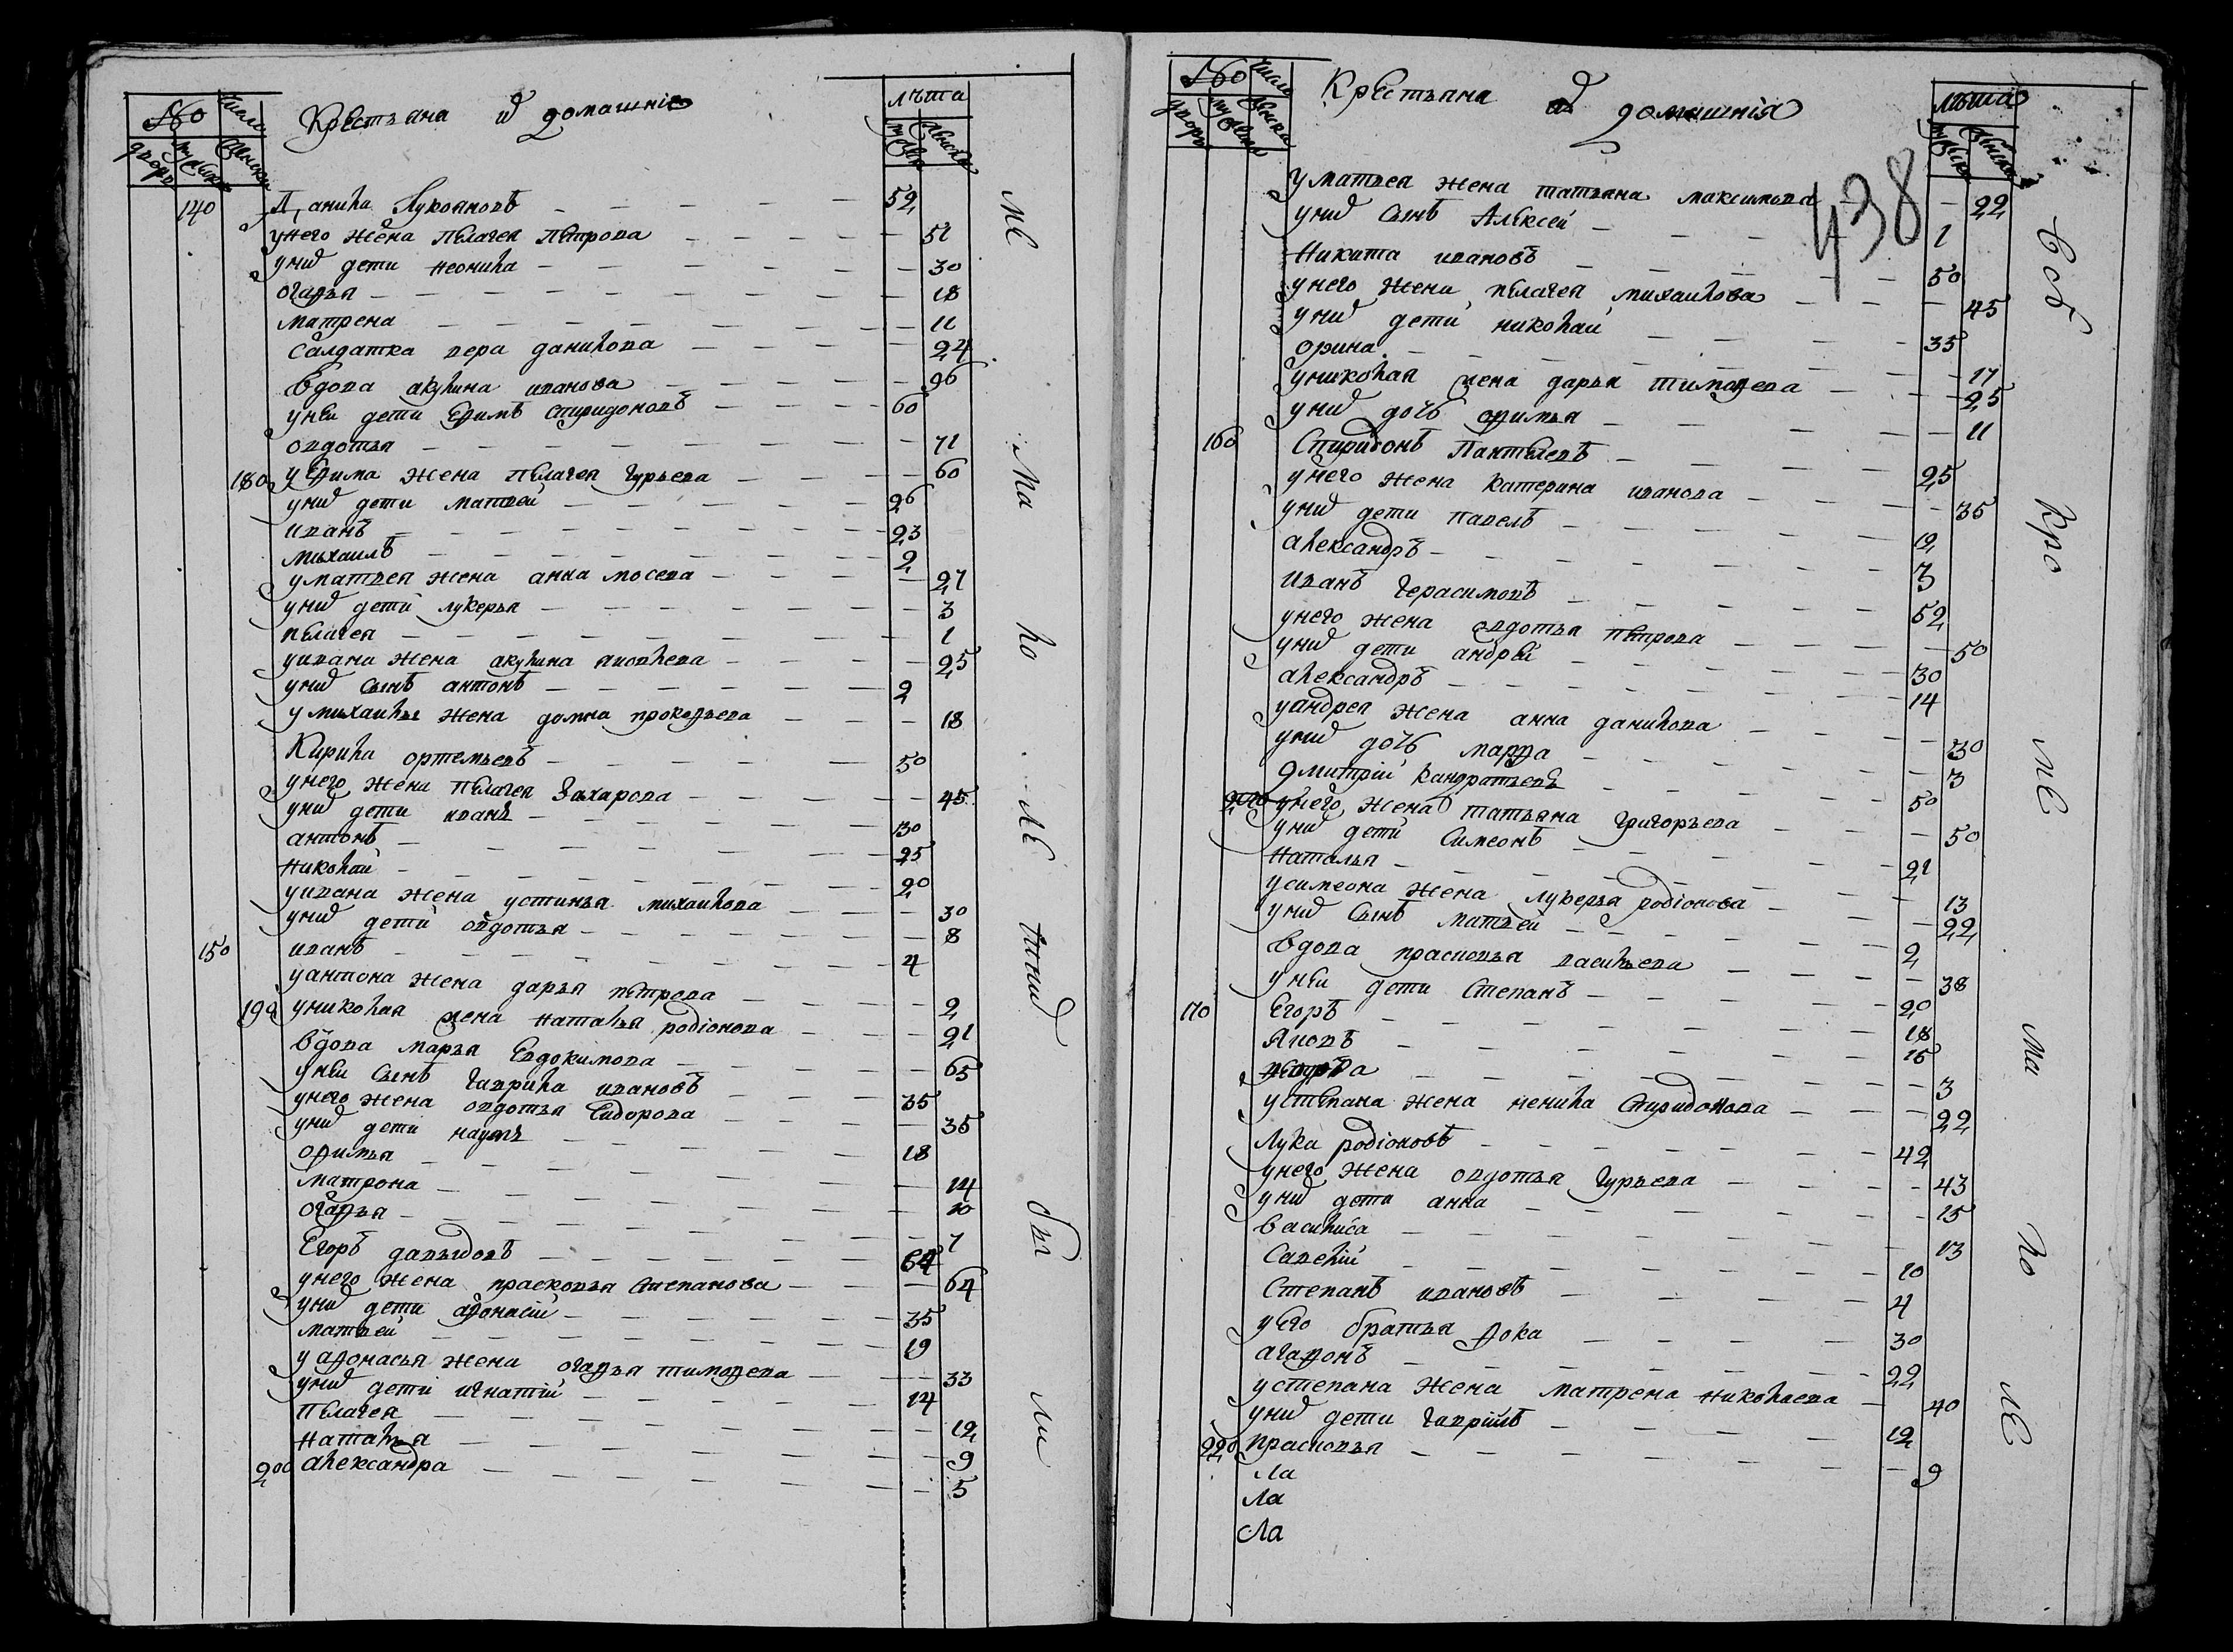 № число
двора мужска женска
Крестьяна и домашнiе
лѣта
мужска женска
140 Данила Лукояновъ 52
унего жена пелагея петрова 51
уних дети неонила 30
огафья 18
матрена 11
салдатка вера данилова 24
вдова акулина иванова 96
уней дети Ефимъ спиридоновъ 60
овдотья 71
180 у Ефима жена пелагея гурьева 60
уних дети матвей 26
иванъ 23
михаилъ 2
уматвея жена анна мосева 27
уних дети лукерья 3
пелагея 1
уивана жена акулина яковлева 25
уних сынъ антонъ 2
у михаилы жена домна прокофьева 18
Кирила ортемьевъ 50
унего жена пелагея захарова 45
уних дети иванъ 30
антонъ 25
николай 20
уивана жена устинья михаилова 30
уних дети овдотья 8
150 иванъ 4
уантона жена дарья петрова 2
190 униколая жена наталья родiонова 21
вдова марья Евдокимова 65
уней сынъ гаврила ивановъ 35
унего жена овдотья Сидорова 35
уних дети наумъ 18
офимья 14
матрона 10
огафья 7
Егоръ давыдовъ 64
унего жена прасковья степанова 64
уних дети афонасiй 35
матвей 19
у афонасья жена огафья тимофева 33
уних дети игнатiй 14
пелагея 12
наталья 9
200 александра 5
ме
ма
ло
ле
тних
бы
ли
№ число
двора мужска женска
Крестьяна и домашнiя
лѣта
мужска женска
438
уматвея жена татьяна максимова 22
уних сынъ Алексей 1
Никита ивановъ 50
унего жена пелагея михаилова 45
уних дети николай 35
орина 17
униколая жена дарья тимофева 25
уних дочь офимья 11
160 Спиридонъ Пантелевъ 25
унего жена катерина иванова 35
уних дети павелъ 12
александръ 3
Иванъ герасимовъ 52
унего жена овдотья петрова 50
уних дети андрей 30
александръ 14
уандрея жена анна данилова 30
уних дочь марфа 3
дмитрiй кандратьевъ 50
210 унего жена татьяна григорьева 50
уних дети Симеонъ 21
Наталья 13
усимеона жена лукерья родiонова 22
уних сынъ матвей 2
вдова прасковья васильева 38
уней дети степанъ 20
170 Егоръ 18
Яковъ 15
3
устепана жена ненила Спиридонова 22
Лука родiоновъ 42
унего жена овдотья гурьева 43
уних дети анна 15
василиса 13
Савелiй 10
Степанъ ивановъ 4
уего братья фока 30
агафонъ 22
устепана жена матрена николаева 40
уних дети гаврiилъ 12
220 прасковья 9
ла
ла
ла
Соб
Кро
ме
ма
ло
ле